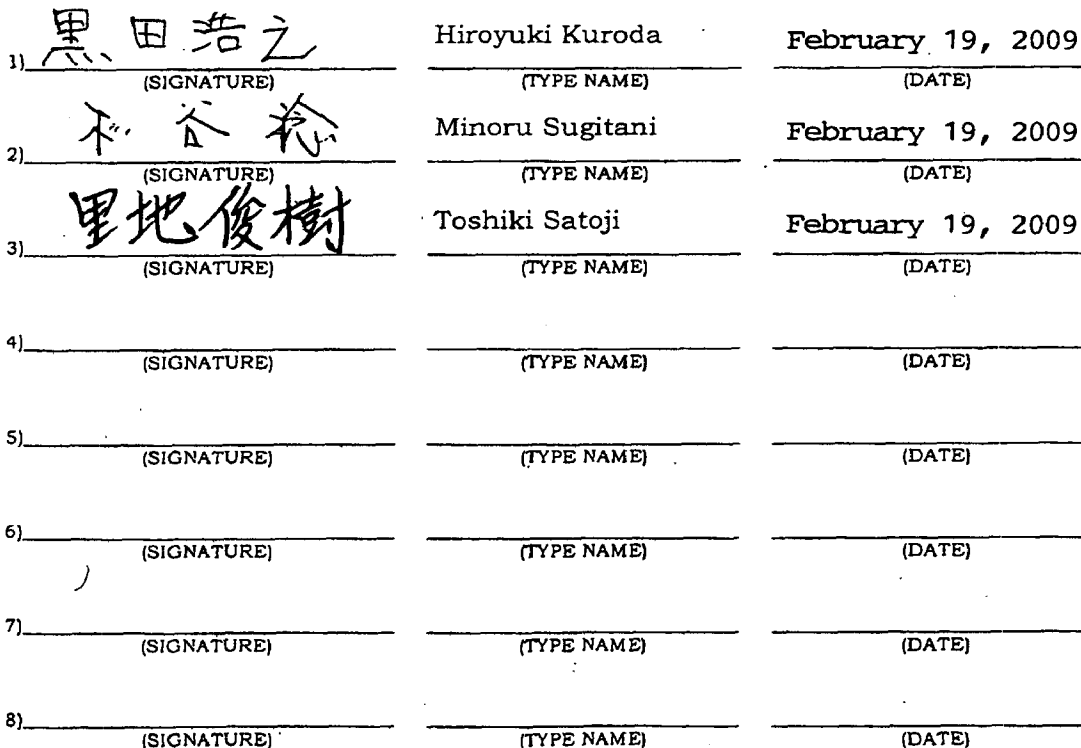 黒田浩之 Hiroyuki Kuroda February 19, 2009
1) (SIGNATURE) (TYPE NAME) (DATE)
杉谷稔 Minoru Sugitani February 19, 2009
2) (SIGNATURE) (TYPE NAME) (DATE)
里地俊樹 Toshiki Satoji February 19, 2009
3) (SIGNATURE) (TYPE NAME) (DATE)
4) (SIGNATURE) (TYPE NAME) (DATE)
5) (SIGNATURE) (TYPE NAME) (DATE)
6) (SIGNATURE) (TYPE NAME) (DATE)
7) (SIGNATURE) (TYPE NAME) (DATE)
8) (SIGNATURE) (TYPE NAME) (DATE)